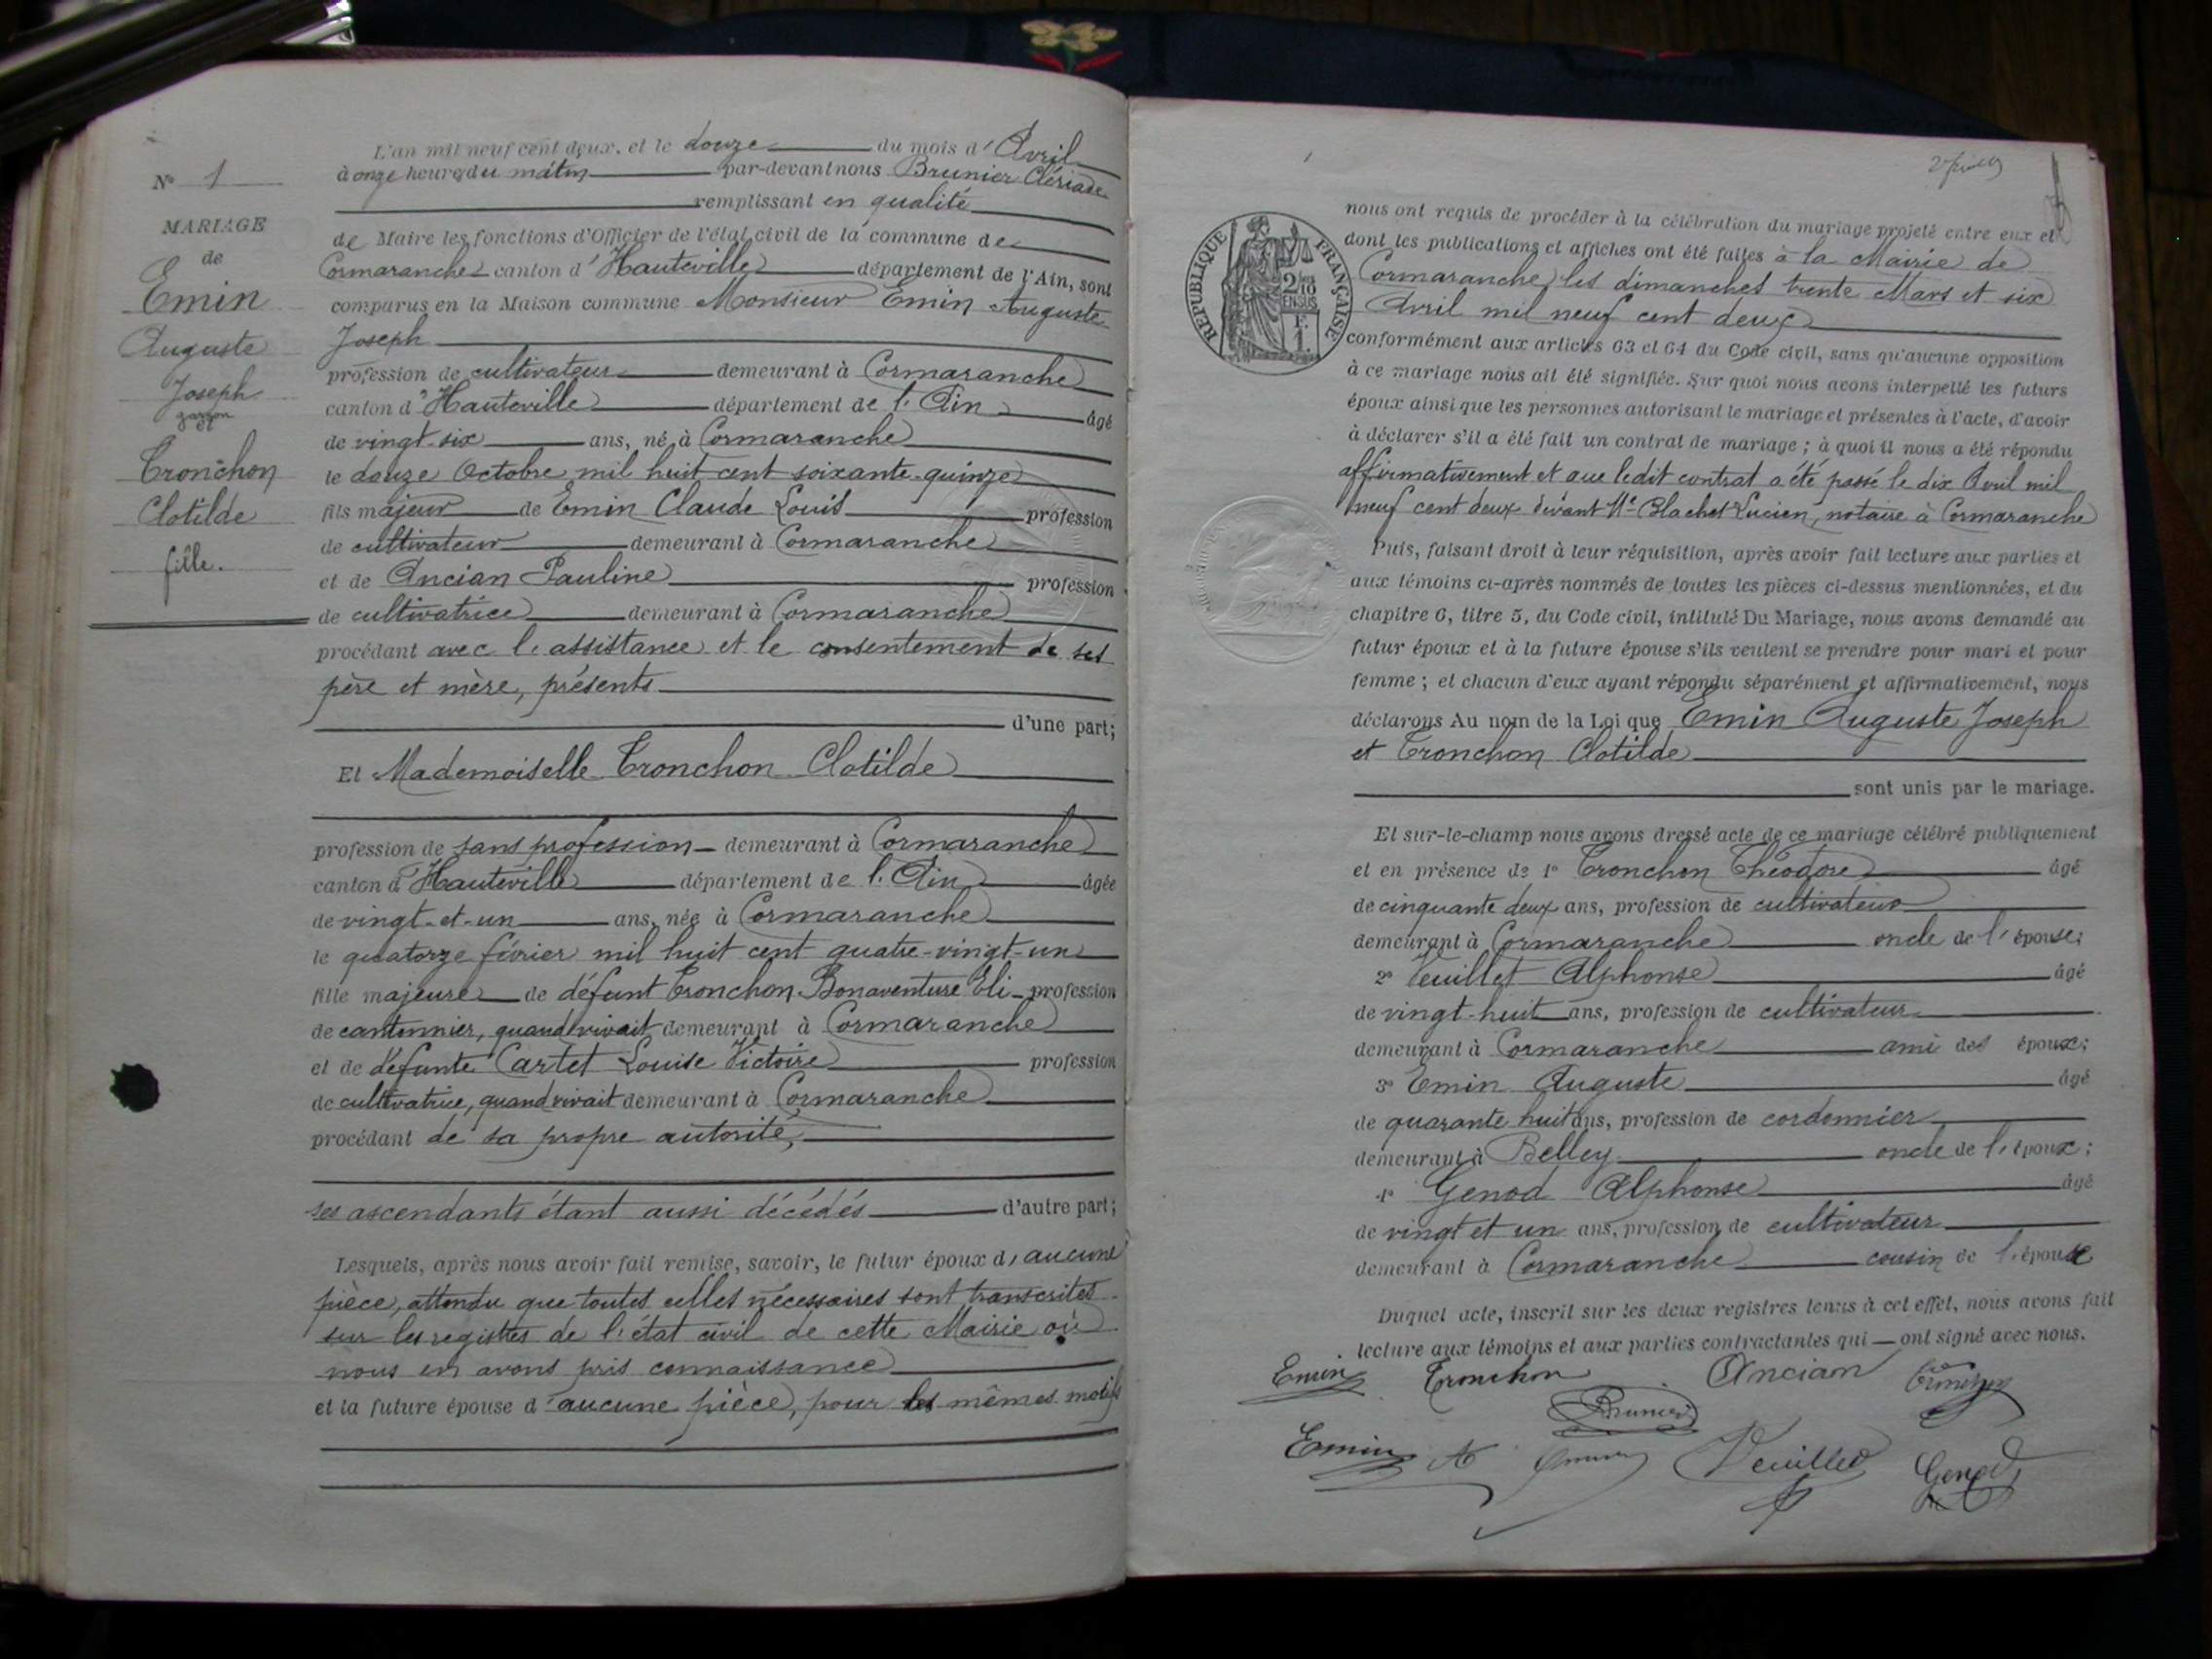 L'an mil neuf cent deux, et le douze du mois d'Avril
à onze heures du matin par-devant nous Brunier Clériade
remplissant en qualité
de Maire les fonctions d'Officier de l'état civil de la commune de
Cormaranche canton d'Hauteville département de l'Ain, sont
comparus en la Maison commune Monsieur Emin Auguste
Joseph
profession de cultivateur demeurant à Cormaranche
canton d'Hauteville département de l'Ain âgé
de vingt-six ans, né à Cormaranche
le douze Octobre mil huit cent soixante-quinze
fils majeur de Emin Claude Louis profession
de cultivateur demeurant à Cormaranche
et de Ancian Pauline profession
de cultivatrice demeurant à Cormaranche
procédant avec l'assistance et le consentement de ses
père et mère, présents
d'une part;
Et Mademoiselle Tronchon Clotilde
profession de sans profession demeurant à Cormaranche
canton d'Hauteville département de l'Ain âgée
de vingt-et-un ans, née à Cormaranche
le quatorze février mil huit cent quatre-vingt-un
fille majeure de défunt Tronchon Bonaventure Eli profession
de cantonnier, quand vivait demeurant à Cormaranche
et de défunte Cartet Louise Victoire profession
de cultivatrice, quand vivait demeurant à Cormaranche
procédant de sa propre autorité,
ses ascendants étant aussi décédés d'autre part;
Lesquels, après nous avoir fait remise, savoir, le futur époux d'aucune
pièce, attendu que toutes celles nécessaires sont transcrites
sur les registres de l'état civil de cette Mairie où
nous en avons pris connaissance
et la future épouse d'aucune pièce, pour les mêmes motifs
N° 1
MARIAGE
de
Emin
Auguste
Joseph
garçon
et
Tronchon
Clotilde
fille.
REPUBLIQUE FRANÇAISE
2/10
EN SUS
F.
1.
nous ont requis de procéder à la célébration du mariage projeté entre eux et
dont les publications et affiches ont été faites à la Mairie de
Cormaranche les dimanches trente Mars et six
Avril mil neuf cent deux
conformément aux articles 63 et 64 du Code civil, sans qu'aucune opposition
à ce mariage nous ait été signifiée. Sur quoi nous avons interpellé les futurs
époux ainsi que les personnes autorisant le mariage et présentes à l'acte, d'avoir
à déclarer s'il a été fait un contrat de mariage; à quoi il nous a été répondu
affirmativement et que ledit contrat a été passé le dix Avril mil
neuf cent deux devant Me Blachet Lucien, notaire à Cormaranche
Puis, faisant droit à leur réquisition, après avoir fait lecture aux parties et
aux témoins ci-après nommés de toutes les pièces ci-dessus mentionnées, et du
chapitre 6, titre 5, du Code civil, intitulé Du Mariage, nous avons demandé au
futur époux et à la future épouse s'ils veulent se prendre pour mari et pour
femme; et chacun d'eux ayant répondu séparément et affirmativement, nous
déclarons Au nom de la Loi que Emin Auguste Joseph
et Tronchon Clotilde
sont unis par le mariage.
Et sur-le-champ nous avons dressé acte de ce mariage célébré publiquement
et en présence de 1° Tronchon Théodore âgé
de cinquante deux ans, profession de cultivateur
demeurant à Cormaranche oncle de l'épouse;
2° Veuillet Alphonse âgé
de vingt-huit ans, profession de cultivateur
demeurant à Cormaranche ami des époux;
3° Emin Auguste âgé
de quarante huit ans, profession de cordonnier
demeurant à Belley oncle de l'époux;
4° Genod Alphonse âgé
de vingt et un ans, profession de cultivateur
demeurant à Cormaranche cousin de l'épouse
Duquel acte, inscrit sur les deux registres tenus à cet effet, nous avons fait
lecture aux témoins et aux parties contractantes qui — ont signé avec nous.
Emin Tronchon Ancian
Brunier
Emin A Veuillet Genod